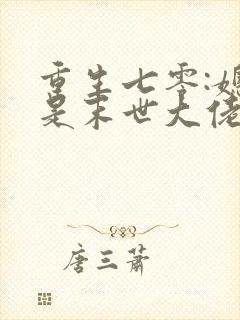 重生七零:媳
是末世大佬
唐三萧